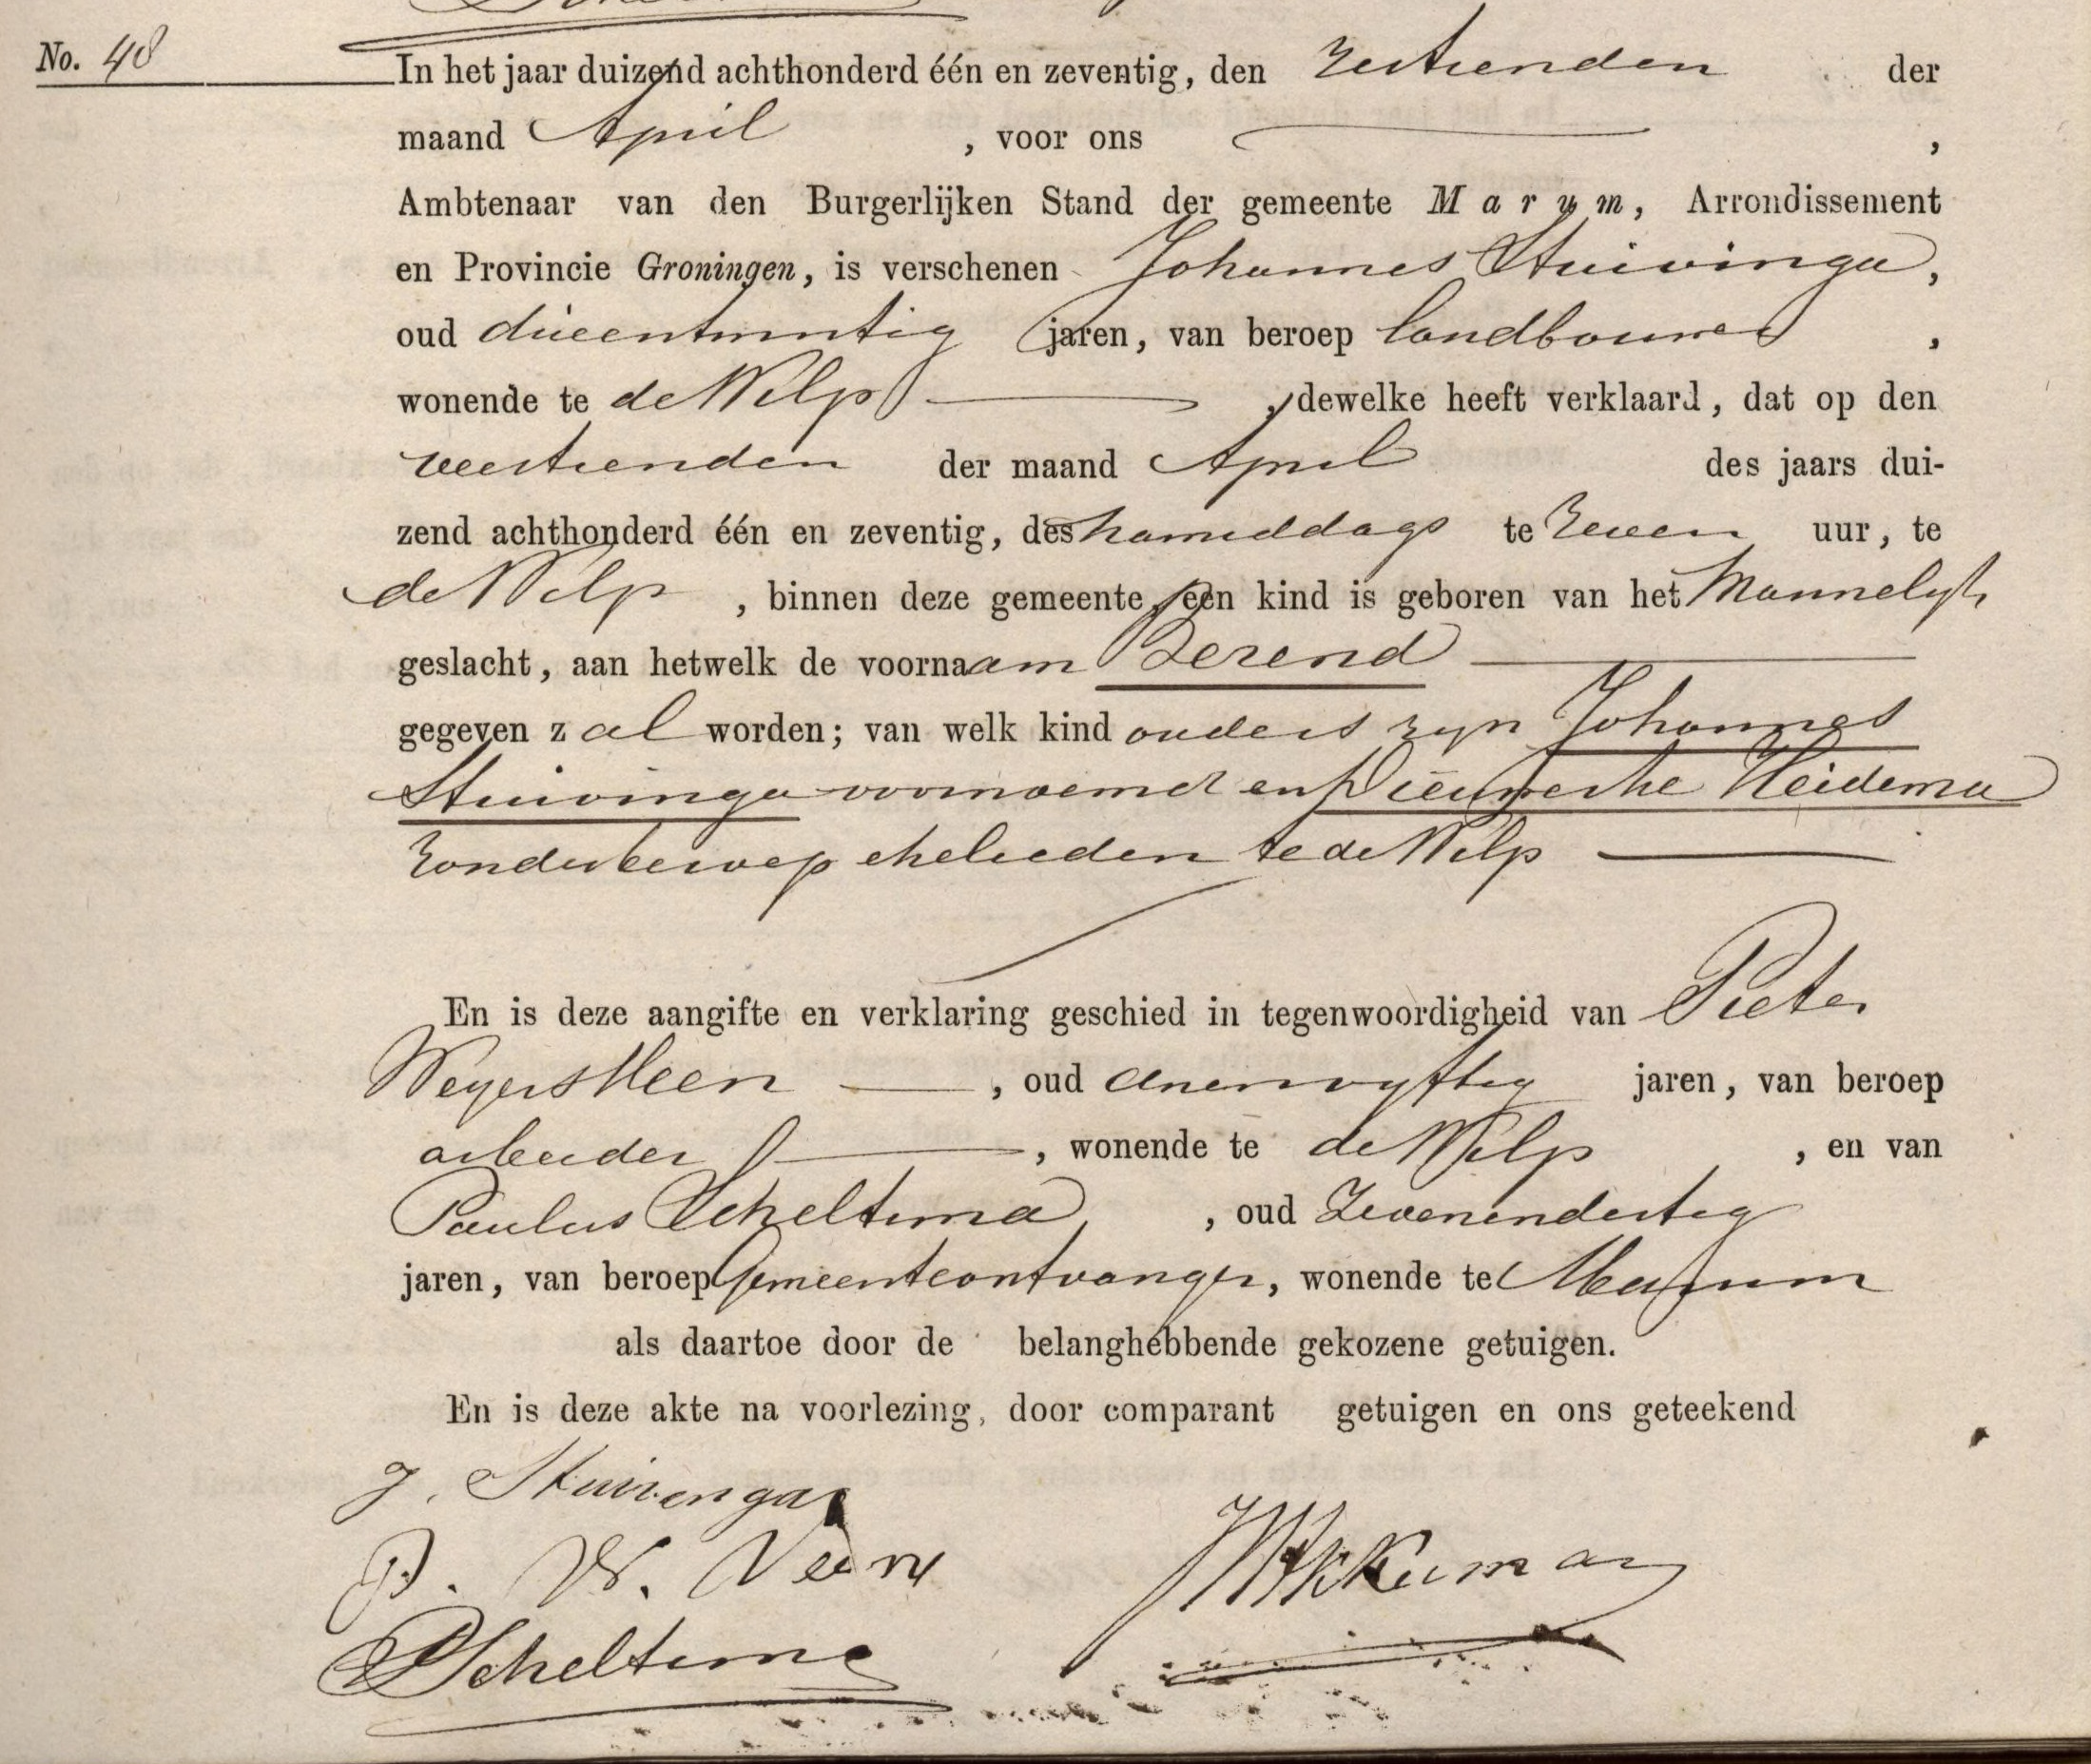 No. 48
In het jaar duizend achthonderd één en zeventig, den zestienden der
maand April , voor ons ,
Ambtenaar van den Burgerlijken Stand der gemeente Marum, Arrondissement
en Provincie Groningen, is verschenen Johannes Stuivinga,
oud drieentwintig jaren, van beroep landbouwer ,
wonende te de Wilp , dewelke heeft verklaard, dat op den
veertienden der maand April des jaars dui-
zend achthonderd één en zeventig, des namiddags te zeven uur, te
de Wilp , binnen deze gemeente, een kind is geboren van het Mannelijk
geslacht, aan hetwelk de voornaam Berend
gegeven zal worden; van welk kind ouders zyn Johannes
Stuivinga voornoemd en Heidema
zonder beroep echelieden te de Wilp
En is deze aangifte en verklaring geschied in tegenwoordigheid van Pieter
Weyers Veen , oud enenvyftig jaren, van beroep
arbeider , wonende te de Wilp , en van
Paulus Scheltema , oud Zevenendertig
jaren, van beroep Gemeenteontvanger, wonende te Marum
als daartoe door de belanghebbende gekozene getuigen.
En is deze akte na voorlezing, door comparant getuigen en ons geteekend
J. Stuivenga
P. W. Veen
PScheltema